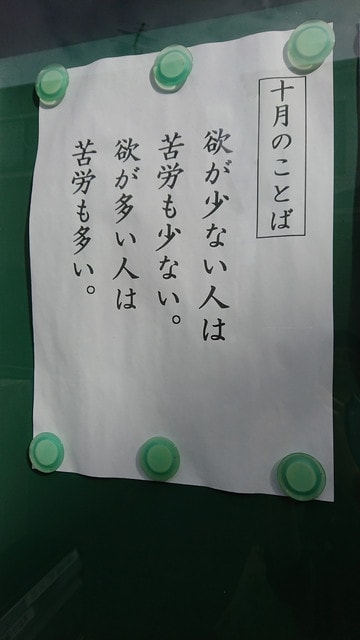 十月のことば
欲が少ない人は
苦労も少ない。
欲が多い人は
苦労も多い。